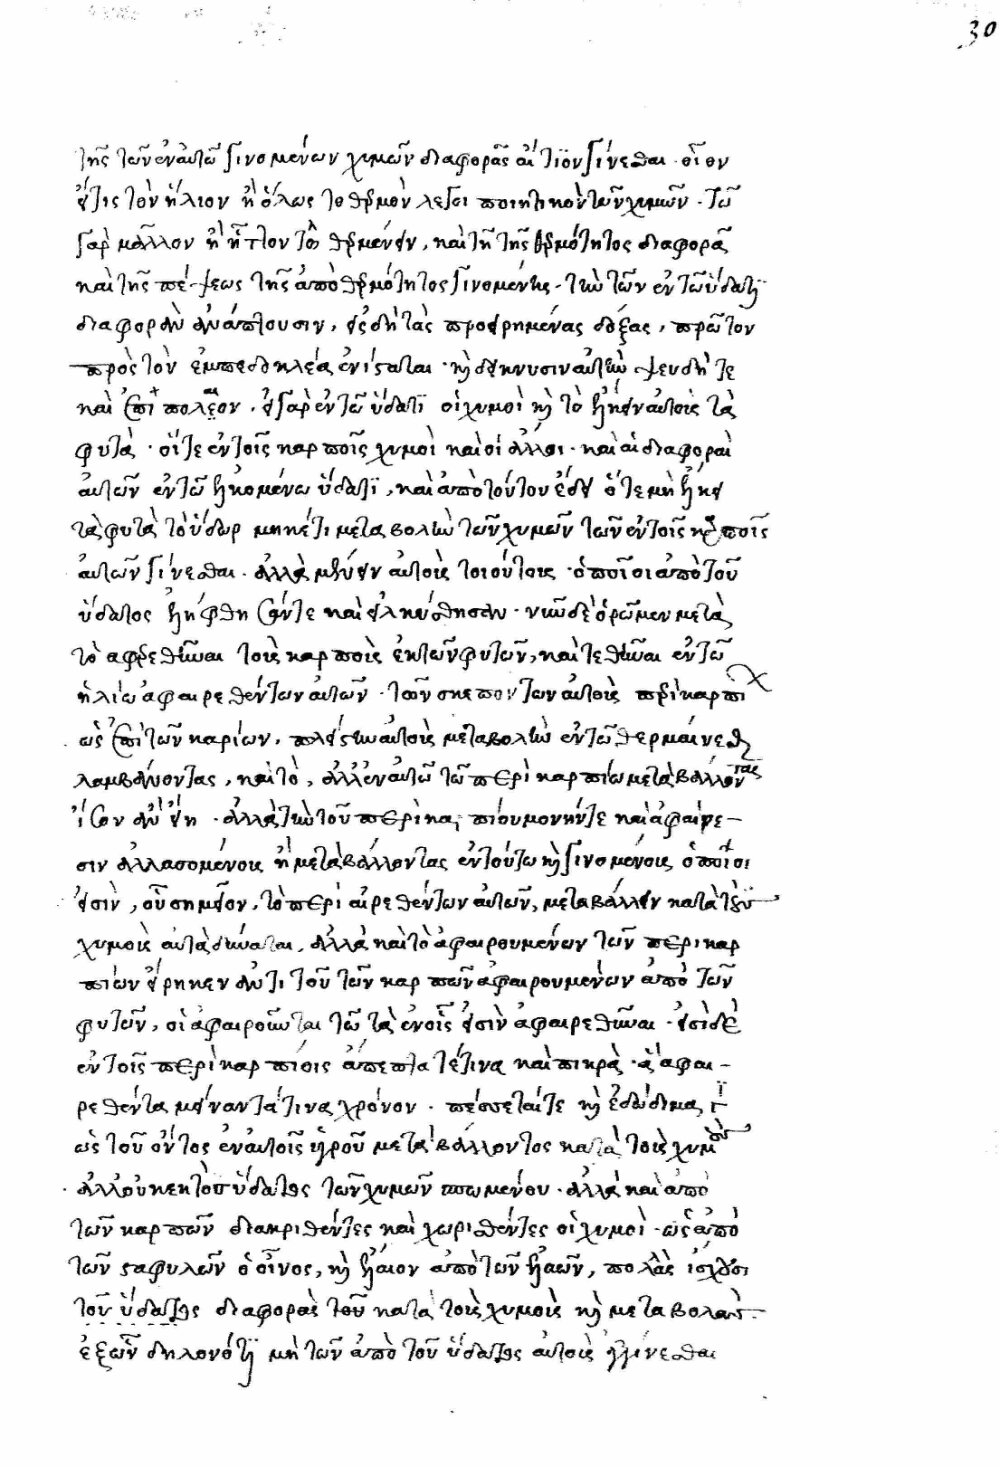 30
τῆς τῶν ἐν αὐτῶ γινομένων χυμῶν διαφορᾶς αἴτιον γίνεσθαι · οἷον
εἴ τις τὸν ἥλιον ἢ ὅλως τὸ θερμὸν λέγοι ποιητικὸν τῶν χυμῶν · τῶ
γὰρ μᾶλλον ἢ ἧττον τὸ θερμαίνειν, καὶ τῆ τῆς θερμότητος διαφορᾶ
καὶ τῆς πέψεως τῆς ἀπὸ θερμότητος γινομένης · τὴν τῶν ἐν τῶ ὕδατι
διαφορὰν ἀνάπτουσιν, εἰς δὴ τὰς προειρημένας δόξας, πρῶτον
πρὸς τὸν ἐμπεδοκλέα ἐνίσταται · καὶ δείκνυσιν αὐτὴν ψευδῆ τε
καὶ ἐπιπόλαιον · εἰ γὰρ ἐν τῶ ὕδατι οἱ χυμοὶ καὶ τὸ ἥκειν αὐτοῖς τὰ
φυτὰ · οἵ τε ἐν τοῖς καρποῖς χυμοὶ καὶ οἱ ἄλλοι · καὶ αἱ διαφοραὶ
αὐτῶν ἐν τῶ ἑλκομένω ὕδατι, καὶ ἀπὸ τούτου ἔδει ὅτε μὴ ἕλκει
τὰ φυτὰ τὸ ὕδωρ μηκέτι μεταβολὴν τῶν χυμῶν τῶν ἐν τοῖς καρποῖς
αὐτῶν γίνεσθαι · ἀλλὰ μένειν αὐτοὺς τοιούτους · ὁποῖοι ἀπὸ τοῦ
ὕδατος ἐλήφθησάν τε καὶ εἱλκύσθησαν · νῦν δὲ ὁρῶμεν μετὰ
τὸ ἀφαιρεθῆναι τοὺς καρποὺς ἐκ τῶν φυτῶν, καὶ τεθῆναι ἐν τῶ
ἡλίω ἀφαιρεθέντων αὐτῶν · τῶν σκεπόντων αὐτοὺς περικαρπί
ὡς ἐπὶ τῶν καρύων, πλείστην αὐτοὺς μεταβολὴν ἐν τῶ θερμαίνεσθαι
λαμβάνοντας, καὶ τὸ, ἀλλ' ἐν αὐτῶ τῶ περικαρπίω μεταβάλλοντας
ἴσον ἂν εἴη · ἀλλὰ τὴν τοῦ περικαρπίου μονήν τε καὶ ἀφαίρε-
σιν ἀλλασομένους ἢ μεταβάλλοντας ἐν τούτω καὶ γινομένους ὁποῖοι
εἰσὶν, οὗ σημεῖον, τὸ περιαιρεθέντων αὐτῶν, μεταβάλλειν κατὰ τοὺς
χυμοὺς αὐτὰ δύναται, ἀλλὰ καὶ τὸ ἀφαιρουμένων τῶν περικαρ
πίων εἴρηκεν ἀντὶ τοῦ τῶν καρπῶν ἀφαιρουμένων ἀπὸ τῶν
φυτῶν, οἱ ἀφαιροῦνται τῶ τὰ ἐν οἷς εἰσὶν ἀφαιρεθῆναι · εἰσὶ δὲ
ἐν τοῖς περικαρπίοις ἄπεπτά τέ τινα καὶ πικρὰ · ἃ ἀφαι-
ρεθέντα μείναντά τινα χρόνον · πέσσεταί τε καὶ ἐδώδιμα
ὡς τοῦ ὄντος ἐν αὐτοῖς ὑγροῦ μεταβάλλοντος κατὰ τοὺς χυμοὺς
ἀλλ' οὐκ ἐκ τοῦ ὕδατος τῶν χυμῶν σπωμένου · ἀλλὰ καὶ ἀπὸ
τῶν καρπῶν διακριθέντες καὶ χωρισθέντες οἱ χυμοὶ · ὡς ἀπὸ
τῶν σταφυλῶν ὁ οἶνος, καὶ ἔλαιον ἀπὸ τῶν ἐλαῶν, πολλὰς ἰσχουσι
τοῦ ὕδατος διαφορὰς τοῦ κατὰ τοὺς χυμοὺς καὶ μεταβολὰς
ἐξ ὧν δηλονότι μὴ τῶν ἀπὸ τοῦ ὕδατος αὐτοὺς γίνεσθαι